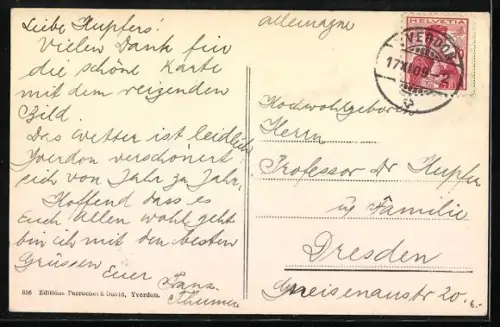 Liebe Kupfers!
Vielen Dank für
die schöne Karte
mit dem reizenden
Bild.
Das Wetter ist leidlich
Yverdon verschönert
sich von Jahr zu Jahr.
Hoffend dass es
Euch allen wohl geht
bin ich mit den besten
Grüssen Euer
Franz
656 Editions Perrochet & David, Yverdon.
Allemagne
HELVETIA
YVERDON
17 XI 09
Hochwohlgeboren
Herrn
Professor Dr Kupfer
u. Familie
Dresden
Gneisenaustr 20.